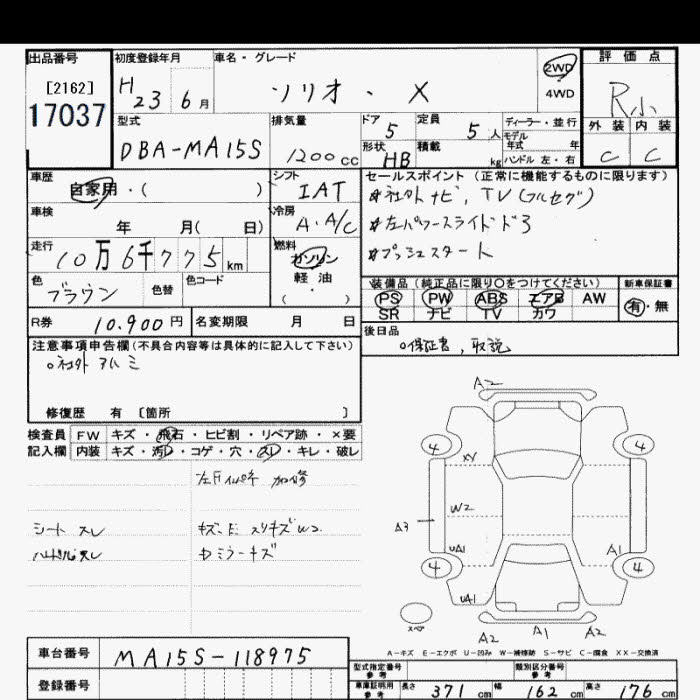 出品番号
[2162]
17037
初度登録年月
H 23 6月
車名・グレード
ソリオ・X
2WD
4WD
評価点
R小
外装 内装
C C
型式
DBA-MA15S
排気量
1200cc
ドア 5
定員 5人
形状 HB
積載 kg
ディーラー・並行
モデル年式 年
ハンドル 左・右
車歴
自家用・( )
シフト
IAT
セールスポイント (正常に機能するものに限ります)
#社外ナビ、TV(フルセグ)
#左パワースライドドア
#プッシュスタート
車検
年 月( 日)
冷房
A・A/C
走行
10万6千775km
燃料
ガソリン
軽油
( ・ )
色
ブラウン
色替
色コード
装備品 (純正品に限り○をつけてください)
PS PW ABS エアB AW
SR ナビ TV カワ
新車保証書
有・無
R券 10.900円
名変期限 月 日
後日品
○保証書、取説
注意事項申告欄(不具合内容等は具体的に記入して下さい)
○社外アルミ
修復歴 有 〔箇所 〕
検査員記入欄
FW キズ・飛石・ヒビ割・リペア跡・×要
内装 キズ・汚レ・コゲ・穴・スレ・キレ・破レ
加修
シート スレ
ハンドルスレ
キズ・E スリキズW2
ミラーキズ
A2
4 4
XV
W2
A3
UA1
A1
4 4
UA1
スペア
A2 A1 A2
A-キズ E-エクボ U-凹み W-補修跡 S-サビ C-腐食 XX-交換済
車台番号 MA15S-118975
登録番号
型式指定番号 参考
類別区分番号 参考
車庫証明用 参考
長さ 371cm 幅 162cm 高さ 176cm